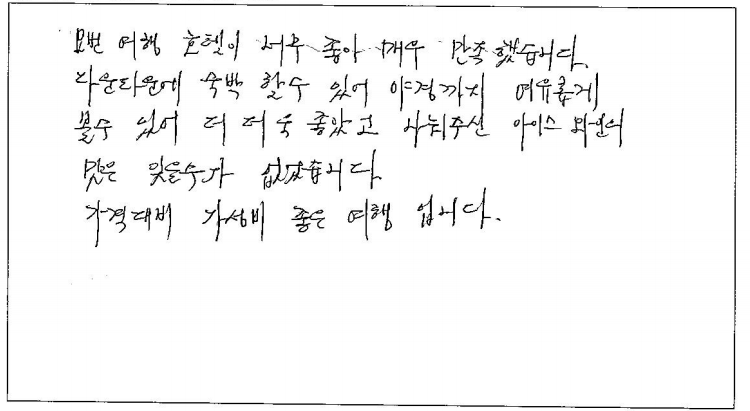 요번 여행 호텔이 너무 좋아 매우 만족했습니다.
다운타운에 숙박 할수 있어 야경까지 여유롭게
볼수 있어 더 더욱 좋았고 나눠주신 아이스 와인의
맛은 잊을수가 없겠습니다
가격대비 가성비 좋은 여행 입니다.